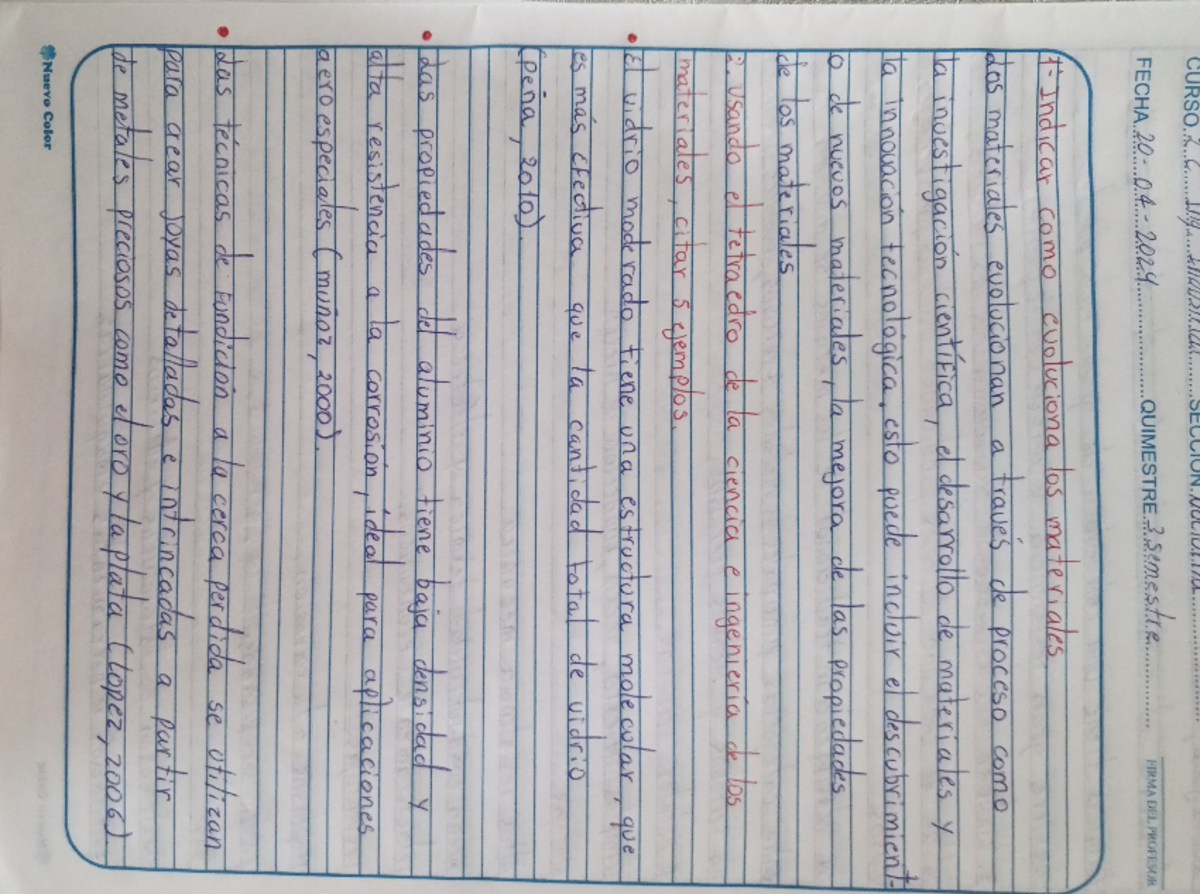 CURSO
SECCION
FECHA 20-04-2024 QUIMESTRE 3 semestre
FIRMA DEL PROFESOR
1- Indicar como evoluciona los materiales
Los materiales evolucionan a través de proceso como
la investigación científica, el desarrollo de materiales y
la innovación tecnológica, esto puede incluir el descubrimient-
o de nuevos materiales, la mejora de las propiedades
de los materiales
2. usando el tetraedro de la ciencia e ingeniería de los
materiales, citar 5 ejemplos.
• El vidrio moderado tiene una estructura molecular, que
es más efectiva que la cantidad total de vidrio
(peña, 2010).
• Las propiedades del aluminio tiene baja densidad y
alta resistencia a la corrosión, ideal para aplicaciones
aeroespeciales (muñoz, 2000).
• Las técnicas de fundición a la cerca perdida se utilizan
para crear joyas detalladas e intrincadas a partir
de metales preciosos como el oro y la plata (Lopez, 2006).
Nuevo Color